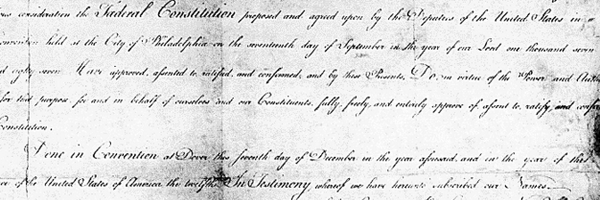 consideration the Fœderal Constitution proposed and agreed upon by the Deputies of the United States in a
Convention held at the City of Philadelphia on the seventeenth day of September in the year of our Lord one thousand seven
eighty seven Have approved, assented to, ratified, and confirmed, and by these Presents, Do, in virtue of the Power and
for that purpose, for and in behalf of ourselves and our Constituents, fully, freely, and entirely approve of, assent to, ratify, and
Constitution.
Done in Convention at Dover this seventh day of December in the year aforesaid, and in the year of the
of the United States of America the twelfth. In Testimony, whereof we have hereunto subscribed our Names